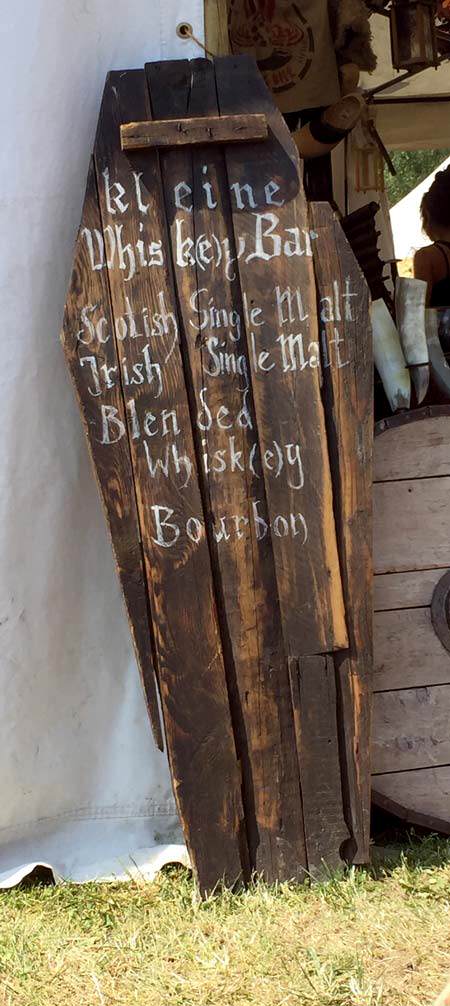 kleine
Whisk(e)y Bar
Scotish Single Malt
Irish Single Malt
Blended
Whisk(e)y
Bourbon